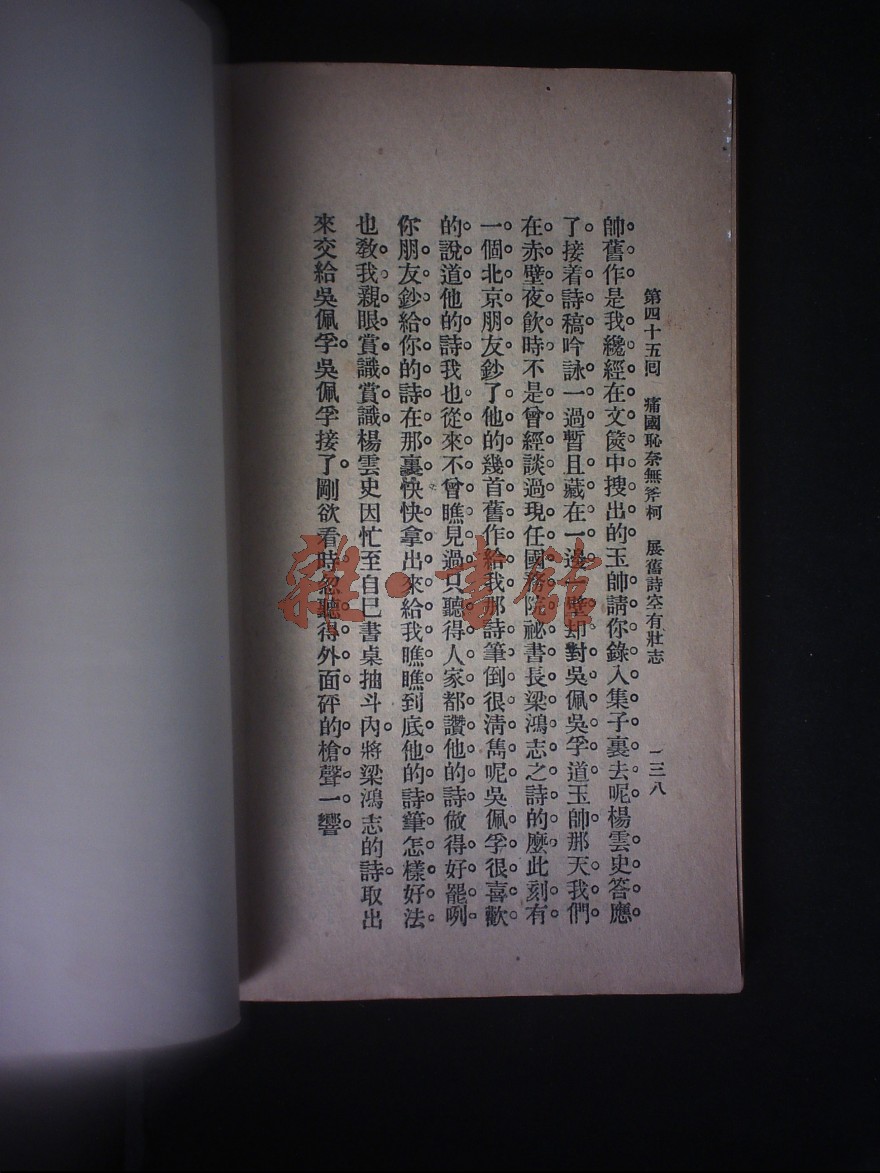 第四十五回 痛國恥奈無斧柯 展舊詩空有壯志 一三八
帥舊作是我纔經在文篋中搜出的玉帥請你錄入集子裏去呢楊雲史答應
了接着詩稿吟詠一過暫且藏在一邊一壁却對吳佩吳孚道玉帥那天我們
在赤壁夜飲時不是曾經談過現任國務院祕書長梁鴻志之詩的麼此刻有
一個北京朋友鈔了他的幾首舊作給我那詩筆倒很清雋呢吳佩孚很喜歡
的說道他的詩我也從來不曾瞧見過只聽得人家都讚他的詩做得好罷咧
你朋友鈔給你的詩在那裏快快拿出來給我瞧瞧到底他的詩筆怎樣好法
也教我親眼賞識賞識楊雲史因忙至自己書桌抽斗內將梁鴻志的詩取出
來交給吳佩孚吳佩孚接了剛欲看時忽聽得外面砰的槍聲一響
雜·書館